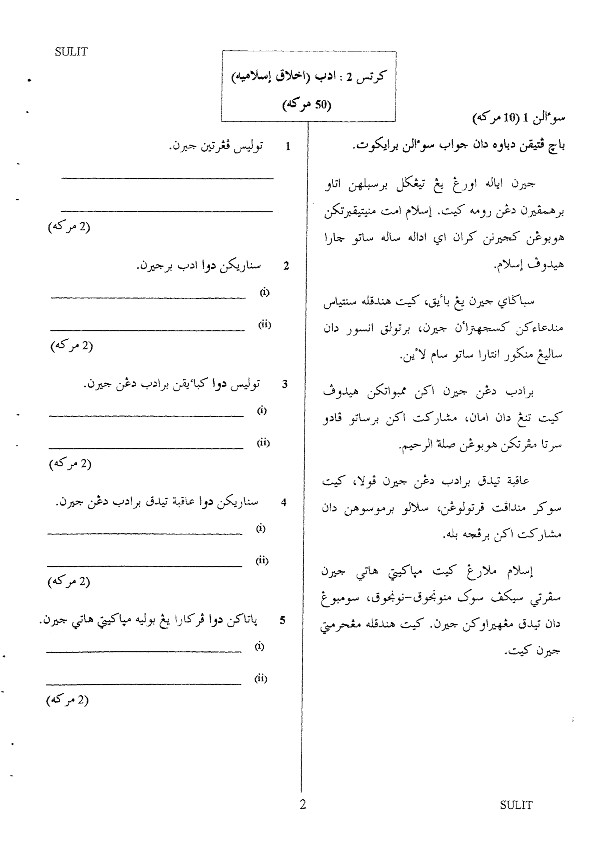 SULIT
كرتس 2 : ادب (اخلاق إسلاميه)
(50 مركه)
سوءالن 1 (10 مركه)
باچ ڤتيقن دباوه دان جواب سوءالن برايكوت.
جيرن اياله اورڠ يڠ تيڠݢل برسبلهن اتاو
برهمڤيرن دڠن رومه كيت. إسلام امت منيتيقبرتكن
هوبوڠن كجيرنن كران اي اداله ساله ساتو چارا
هيدوڤ إسلام.
سباݢاي جيرن يڠ باءيق، كيت هندقله سنتياس
مندعاءكن كسجهتراءن جيرن، برتولق انسور دان
ساليڠ منڠور انتارا ساتو سام لاءين.
برادب دڠن جيرن اكن ممبواتكن هيدوڤ
كيت تنڠ دان امان، مشاركت اكن برساتو ڤادو
سرتا مڤرتكن هوبوڠن صلة الرحيم.
عاقبة تيدق برادب دڠن جيرن ڤولا، كيت
سوكر منداڤت ڤرتولوڠن، سلالو برموسوهن دان
مشاركت اكن برڤچه بله.
إسلام ملارڠ كيت مياكيتي هاتي جيرن
سڤرتي سيكڤ سوك منونجوق-نونجوق، سومبوڠ
دان تيدق مڠهيراوكن جيرن. كيت هندقله مڠحرمتي
جيرن كيت.
1 توليس ڤڠرتين جيرن.
(2 مركه)
2 سناريكن دوا ادب برجيرن.
(i)
(ii)
(2 مركه)
3 توليس دوا كباءيقن برادب دڠن جيرن.
(i)
(ii)
(2 مركه)
4 سناريكن دوا عاقبة تيدق برادب دڠن جيرن.
(i)
(ii)
(2 مركه)
5 ڽاتاكن دوا ڤركارا يڠ بوليه مياكيتي هاتي جيرن.
(i)
(ii)
(2 مركه)
2
SULIT